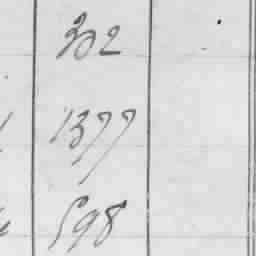 302
1377
598